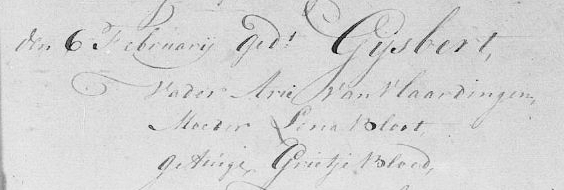 den 6 February ged.t Gijsbert,
Vader Arie Van Vlaardingen,
Moeder Lena Bloot,
getuige, Grietje Bloed,